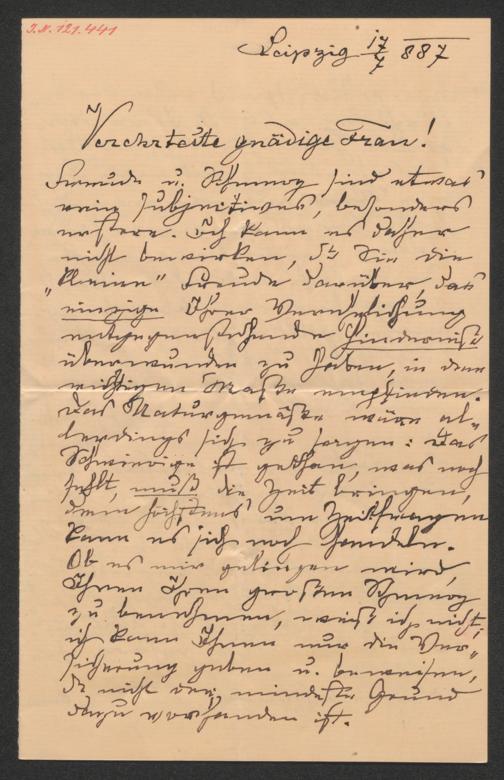 J.N. 121.441
Leipzig 17/7 887
Verehrteste gnädige Frau!
Freude u. Schmerz sind etwas
rein subjectives, besonders
erstere. Ich kann es daher
nicht bewirken, dß Sie die
„kleine“ Freude darüber, das
einzige Ihrer Verehelichung
entgegenstehende Hinderniß
überwunden zu haben, in dem
richtigen Maße empfinden.
Das Naturgemäße wäre al-
lerdings sich zu sagen: Das
Schwierige ist gethan, was noch
fehlt, muß die Zeit bringen,
denn höchstens um Zeitfragen
kann es sich noch handeln.
Ob es mir gelingen wird,
Ihnen Ihren großen Schmerz
zu benehmen, weiß ich nicht,
ich kann Ihnen nur die Ver-
sicherung geben u. beweisen,
dß nicht der mindeste Grund
dazu vorhanden ist.